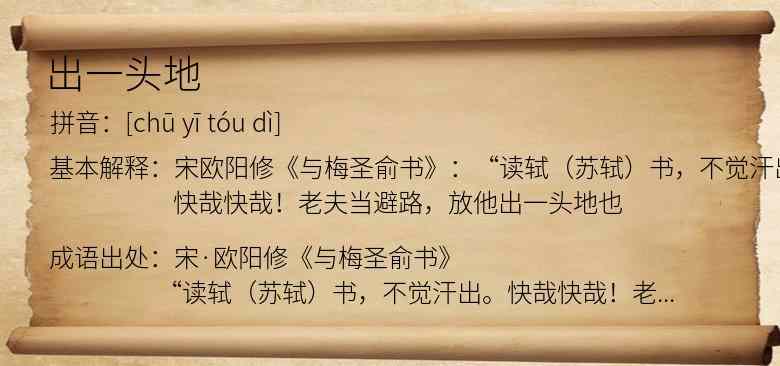 出一头地
拼音：[chū yī tóu dì]
基本解释：宋欧阳修《与梅圣俞书》：“读轼（苏轼）书，不觉汗出
快哉快哉！老夫当避路，放他出一头地也
成语出处：宋·欧阳修《与梅圣俞书》
“读轼（苏轼）书，不觉汗出。快哉快哉！老...